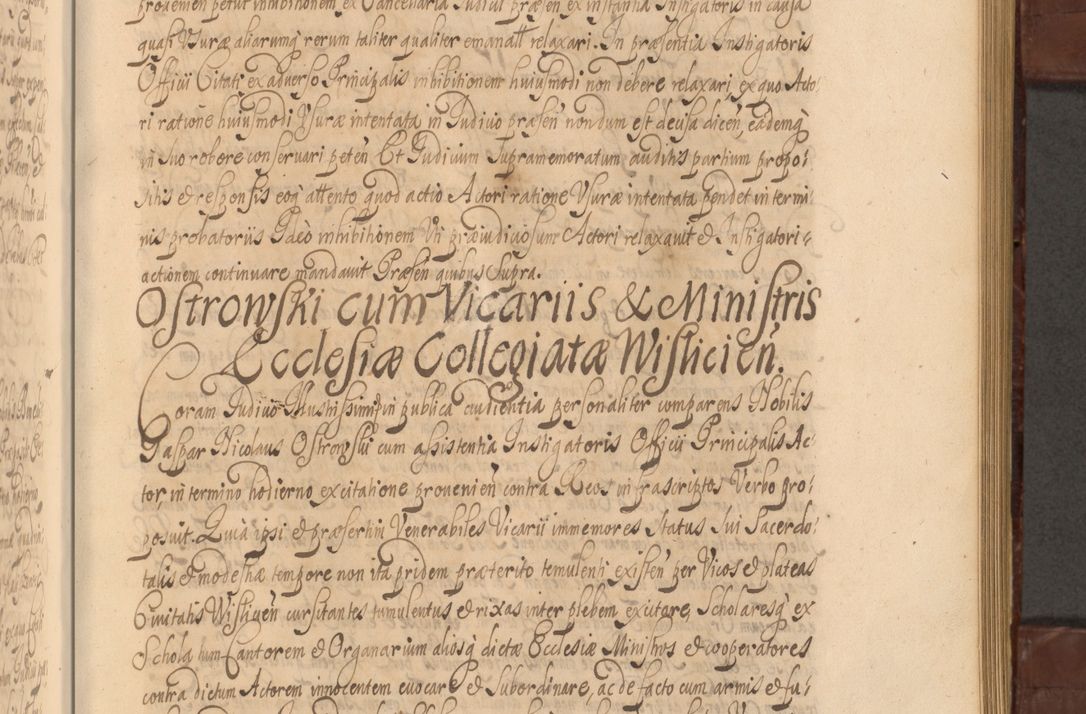 provenien petit inhibitionem ex Cancellaria Iudicii præsen ex instantia Instigatoris in causa
quasi Usuræ aliarumq rerum taliter qualiter emanatt relaxari. In præsentia Instigatoris
Officii Citati ex adverso Principalis inhibitionem huiusmodi non debere relaxari, ex quo Acto-
ri ratione huiusmodi Usuræ intentata in Iudicio præsen nondum est decisa dicen, eademq
in suo robore conservari peten Et Iudicium supramemoratum auditis partium propo-
sitis et responsis eoq attento quod actio Actori ratione Usuræ intentata pendet in termi-
nis probatoriis Ideo inhibitionem Uti præiudiciosam Actori relaxavit et Instigatori
actionem continuare mandavit Præsen quibus Supra.
Ostrowski cum Vicariis & Ministris
Ecclesiæ Collegiatæ Wislicien.
Coram Iudicio Illustrissimi in publica audientia personaliter comparens Nobilis
Gaspar Nicolaus Ostrowski cum assistentia Instigatoris Officii Principalis Ac-
tor, in termino hodierno ex citatione provenien contra Reos infrascriptos Verbo pro-
posuit. Quia ipsi et præsertim Venerabiles Vicarii immemores status sui Sacerdo-
talis et modestiæ tempore non ita pridem præterito temulenti existen per Vicos et plateas
Civitatis Wislicien cursitantes tumulentus et rixas inter plebem excitare, Scholaresq ex
Schola tum Cantorem et Organarium aliosq dictæ Ecclesiæ Ministros et cooperatores
contra dictum Actorem innocentem evocare et subordinare, ac de facto cum armis et fu-